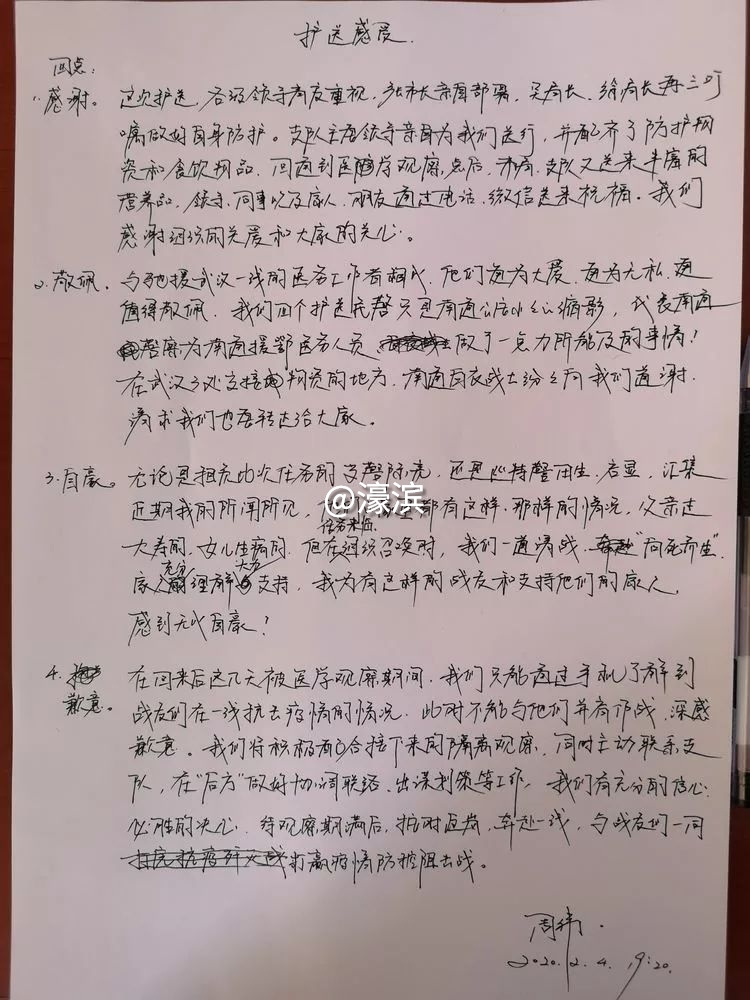 护送感受.
四点:
1.感谢。这次护送,各级领导高度重视,张市长亲自部署,吴局长、给局长再三叮
嘱做好自身防护。支队主要领导亲自为我们送行,并配齐了防护物
资和食饮物品,回南通到医学观察点后,市局、支队又送来丰富的
营养品,领导、同事以及家人、朋友通过电话、微信送来祝福。我们
感谢组织的关爱和大家的关心。
2.敬佩。与驰援武汉一线的医务工作者相比,他们更为大爱、更为无私、更
值得敬佩。我们四个护送民警只是南通公安的缩影,代表南通
警察为南通援鄂医务人员做了一点力所能及的事情!
在武汉多处交接物资的地方,南通白衣战士纷纷向我们道谢,
请求我们也要转达给大家。
3.自豪。无论是担负此次任务的
近期我的所闻所见,都有这样、那样的情况,父亲过
任务来临
大寿的,女儿生病的,但在组织召唤时,我们一道请战,"向死而生",
充分 大力
家人理解支持,我为有这样的战友和支持他们的家人,
感到无比自豪!
4.
歉意。在回来后这几天被医学观察期间,我们只能通过手机了解到
战友们在一线抗击疫情的情况,此时不能与他们并肩作战,深感
歉意。我们将积极配合接下来的隔离观察,同时主动联系支
队,在"后方"做好协调联络、出谋划策等工作,我们有充分的信心、
必胜的决心,待观察期满后,按时返岗,奔赴一线,与战友们一同
打赢疫情防控阻击战。
周伟.
2020.2.4. 19:20.
@濠滨